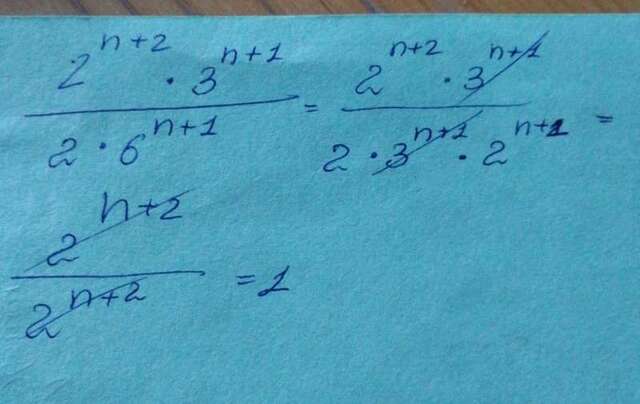 2^{n+2} · 3^{n+1} / 2 · 6^{n+1} = 2^{n+2} · 3^{n+1} / 2 · 3^{n+1} · 2^{n+1} =
2^{n+2} / 2^{n+2} = 1